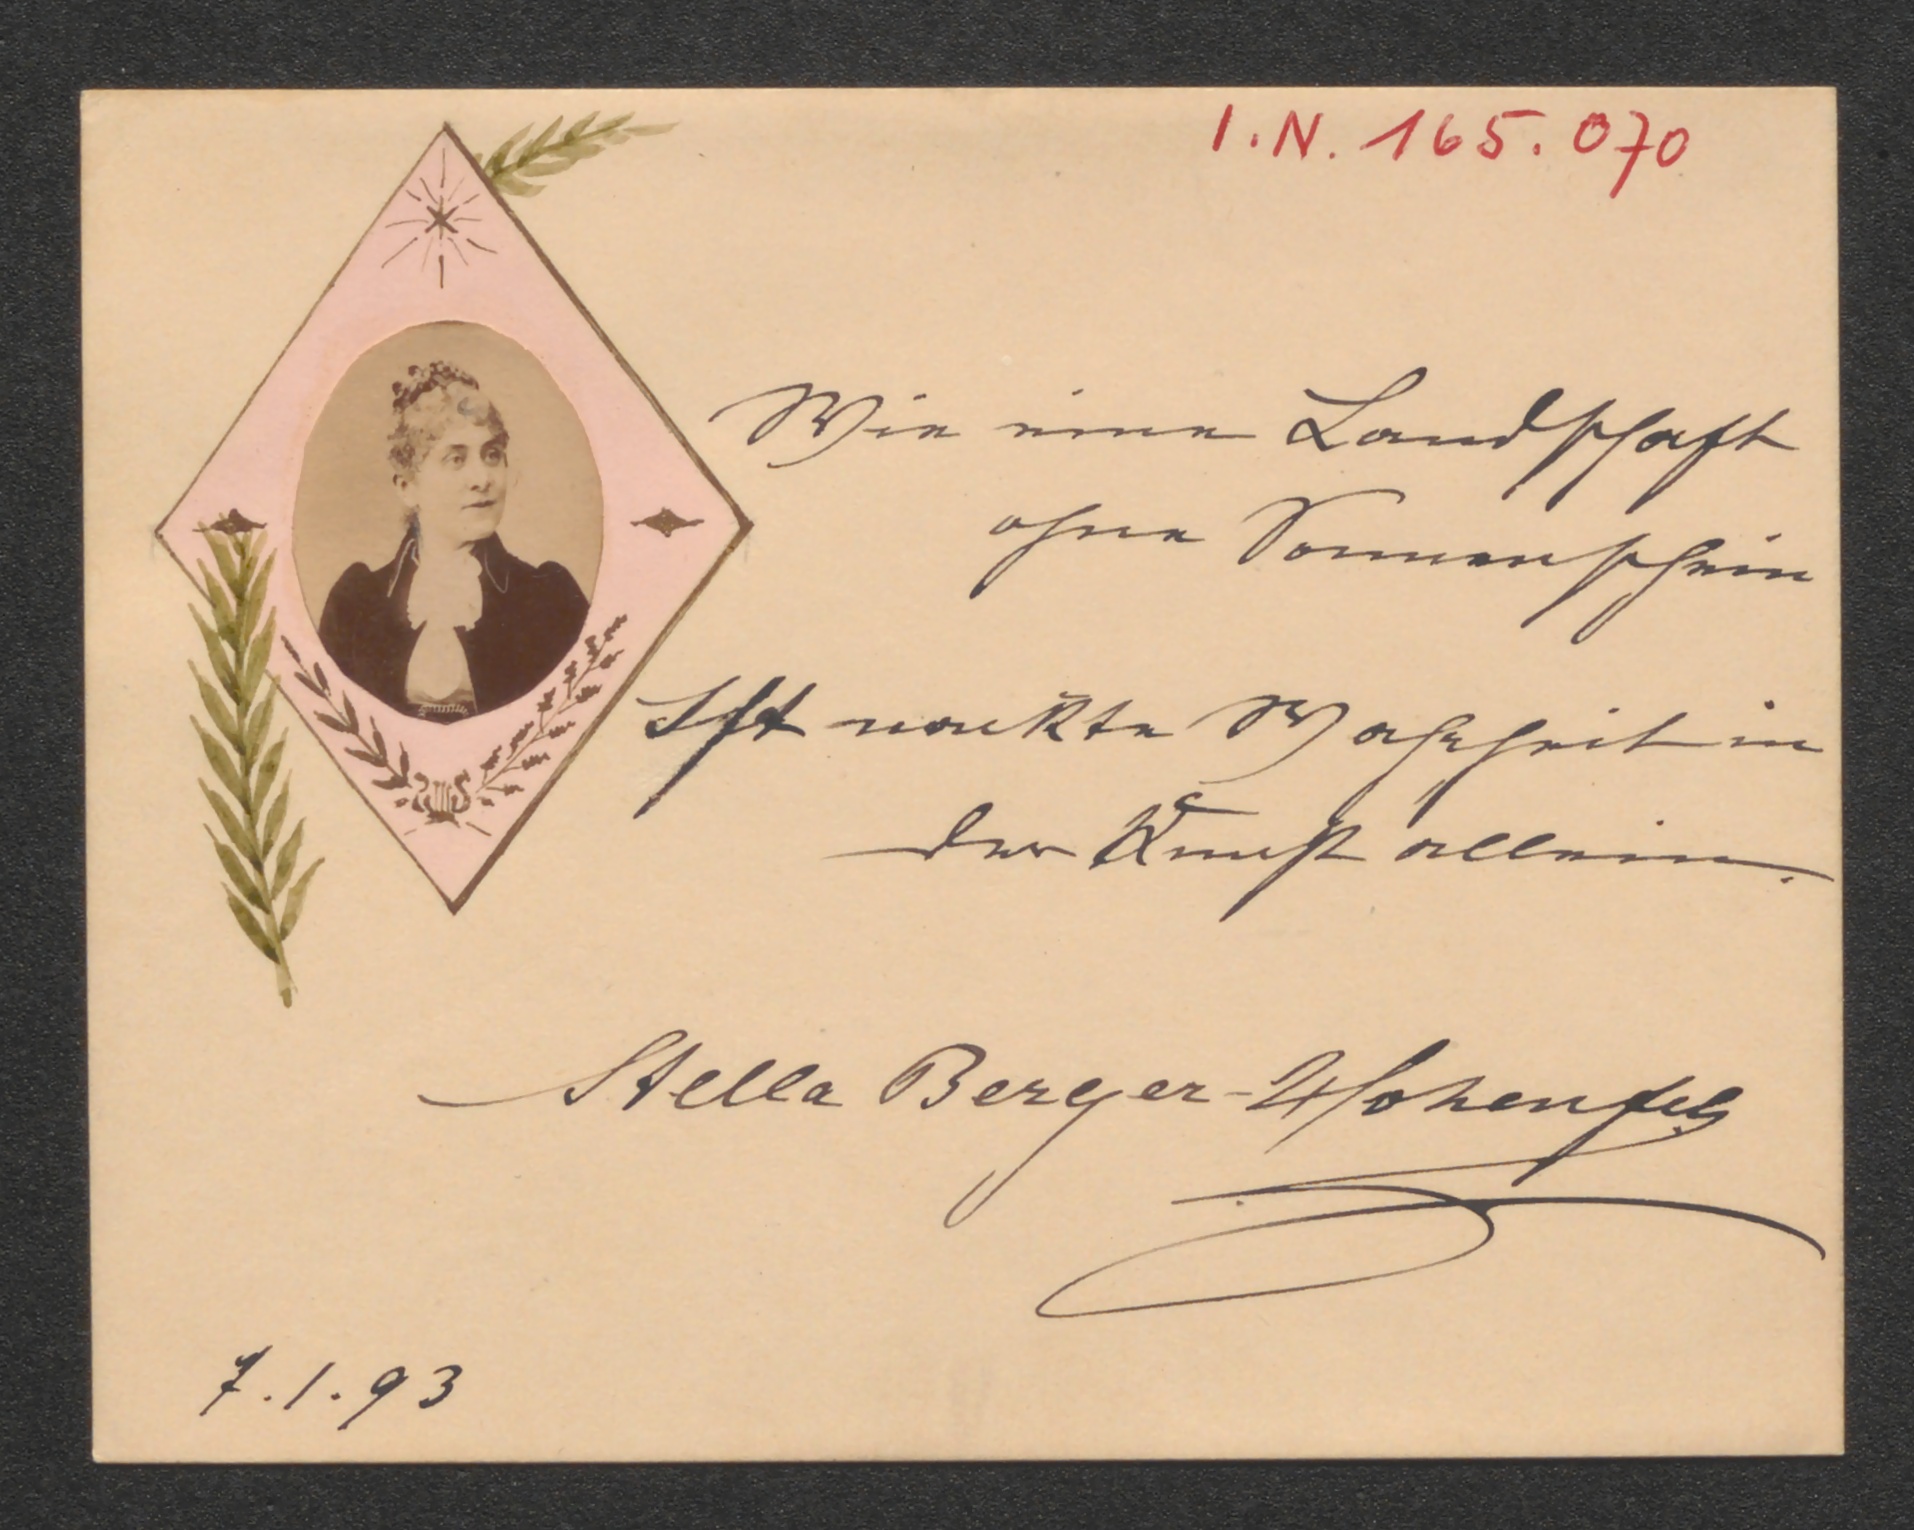 I.N. 165.070
Wie eine Landschaft
ohne Sonnenschein
Ist nackte Wahrheit in
der Kunst allein.
Stella Berger-Hohenfels
7.1.93